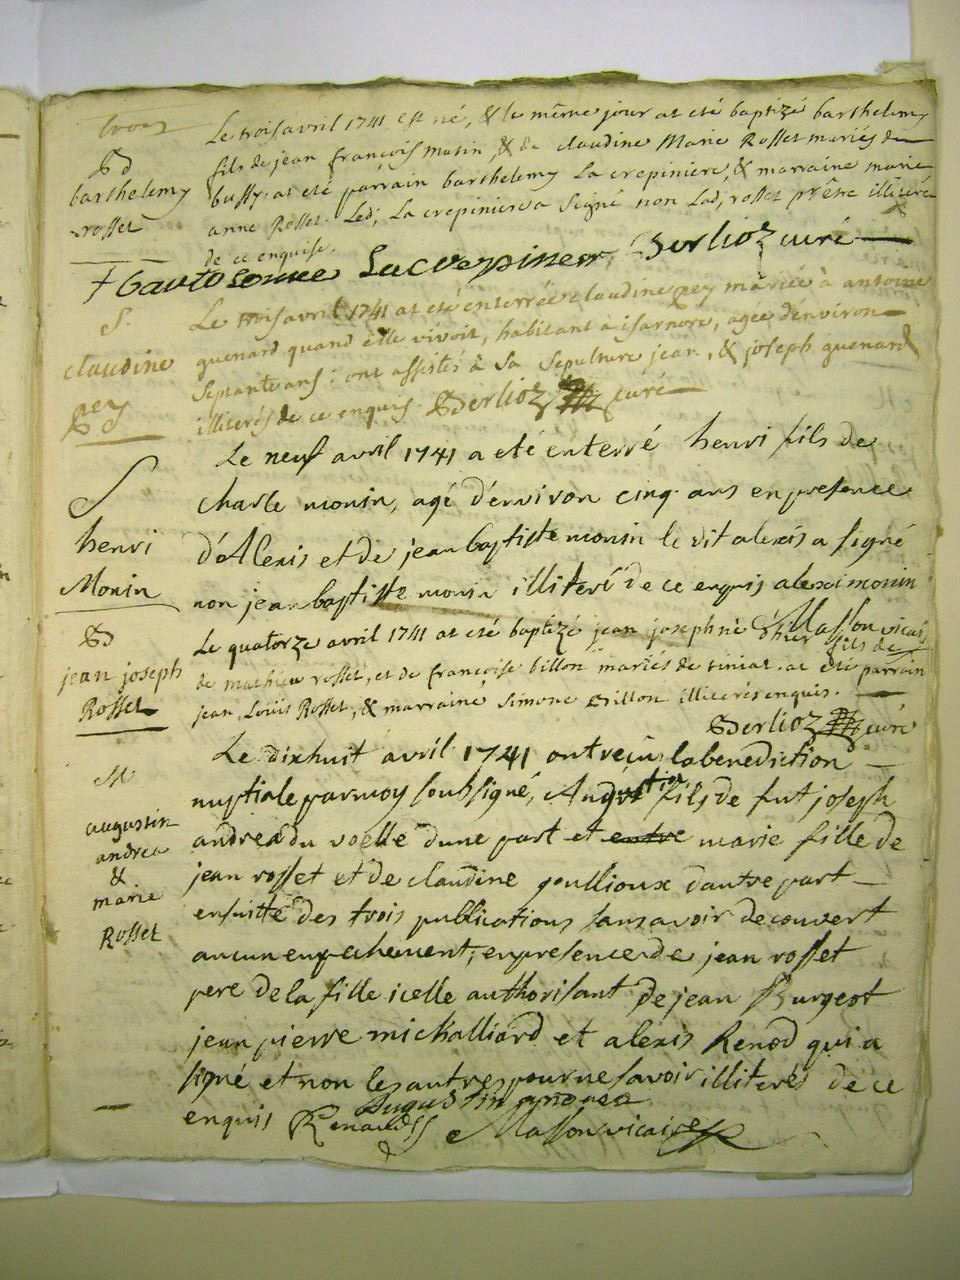 Bd
barthelemy
rosset
Le trois avril 1741 est né, & le même jour at eté baptizé barthelemy
fils de jean françois matin, & de claudine Marie Rosset mariés de
bussy. at eté parrain barthelemy La crepiniere, & marraine marie
anne Rosset. Led; La crepiniere a Signé non Lad; rosset pr être illiteré
de ce enquise.
Lacrepinier Berlioz curé
S.
claudine
Rey
Le trois avril 1741 at eté enterrée claudine Rey mariée à antoine
guenard quand elle vivoit, habitant à isarnore, agée d'environ
Septante ans: ont assistés à Sa Sepulture jean, & joseph guenard
illiterés de ce enquis. Berlioz curé
S
henri
Monin
Le neuf avril 1741 a eté enterré henri fils de
charle monin, agé d'environ cinq ans en presence
d'Alexis et de jean baptiste monin le dit alexis a signé
non jean baptiste monin illiteré de ce enquis alexi monin
Masson vicai
Bd
jean joseph
Rosset
Le quatorze avril 1741 at eté baptizé jean joseph né d'hier fils de
de mathieu rosset, et de françoise billon mariés de siniat. at eté parrain
jean Louis Rosset, & marraine Simone Billon illiterés enquis.
Berlioz curé
M
augustin
andrea
&
marie
Rosset
Le dixhuit avril 1741 ont reçu la benediction
nuptiale par moy soubsigné, Augustin fils de fut joseph
andrea du voelle dune part et entre marie fille de
jean rosset et de claudine goullioux dautre part
ensuitte des trois publications sans avoir decouvert
aucun enpechement, en presence de jean rosset
pere de la fille icelle authorisant de jean Burgeot
jean pierre michalliard et alexis Renod qui a
signé et non les autres pour ne savoir illiterés de ce
enquis Augustin andrea
Renaud Masson vicaire